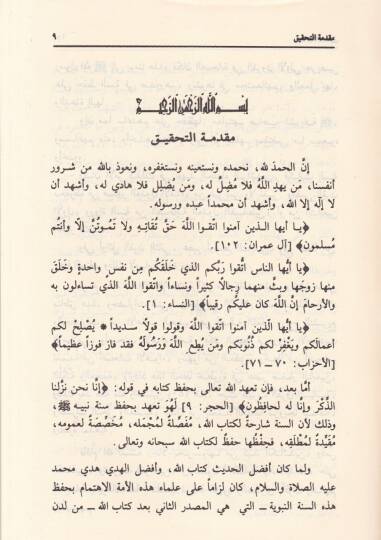 مقدمة التحقيق ٩
بسم الله الرحمن الرحيم
مقدمة التحقيق
إنَّ الحمدَ لله، نحمده ونستعينه ونستغفره، ونعوذ بالله من شرور
أنفسنا، مَن يهدِ اللَّهُ فلا مُضِلَّ له، ومَن يُضْلِل فلا هادي له، وأشهد أن
لا إلٰه إلا الله، وأشهد أن محمداً عبده ورسوله.
﴿يا أيها الـذين آمنوا اتّقـوا اللَّهَ حَقَّ تُقَاتِـهِ ولا تَمـوتُنَّ إلّا وأنتُم
مُسلمون﴾ [آل عمران: ١٠٢].
﴿يا أيُّها الناس اتُّقوا رَبَّكم الذي خَلَقَكُم مِن نفسٍ واحدةٍ وخَلَقَ
منها زوجَها وبثَّ منهما رجالاً كثيراً ونساءً واتقوا اللَّهَ الذي تساءلون به
والأرحامَ إنَّ اللَّهَ كان عليكُم رقيباً﴾ [النساء: ١].
﴿يا أيُّها الّذين آمنوا اتّقوا اللَّهَ وقولوا قولاً سديداً * يُصْلِحْ لكم
أعمالَكم ويَغْفِرْ لكم ذُنُوبَكم ومَن يُطِع اللَّهَ وَرَسُولَهُ فقد فاز فوزاً عظيماً﴾
[الأحزاب: ٧٠ ــ ٧١].
أمَّا بعد، فإن تعهد الله تعالى بحفظ كتابه في قوله: ﴿إنَّا نحن نزَّلنا
الذِّكْرَ وإنَّا له لحافِظُون﴾ [الحجر: ٩] لَهُوَ تعهد بحفظ سنة نبيـه ﷺ،
وذلك لأن السنة شارحةٌ لكتاب الله، مُفَصِّلَةٌ لمُجْمَله، مُخَصِّصَةٌ لعمومه،
مُقَيِّدةٌ لمُطْلَقِه، فحِفْظُها حفظٌ لكتاب الله سبحانه وتعالى.
ولما كان أفضل الحديث كتاب الله، وأفضل الهدي هدي محمد
عليه الصلاة والسلام، كان لزاماً على علماء هذه الأمة الاهتمام بحفظ
هذه السنة النبوية ــ التي هي المصدر الثاني بعد كتاب الله ــ من لدن